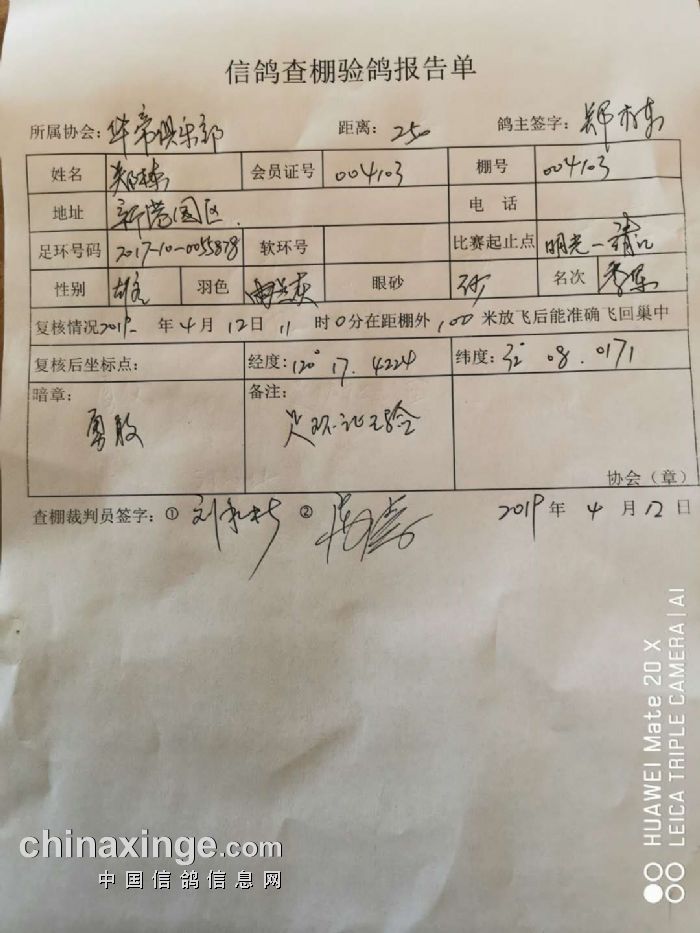 信鸽查棚验鸽报告单
所属协会：华帝俱乐部 距离：250 鸽主签字：郑
姓名 会员证号 004103 棚号 004103
地址 新港园区 电 话
足环号码 2017-10-0055878 软环号 比赛起止点 明光一靖江
性别 雄 羽色 眼砂 砂 名次 季军
复核情况2019 年 4 月 12 日 11 时 0 分在距棚外 1,00 米放飞后能准确飞回巢中
复核后坐标点： 经度：120°17.4224 纬度：32°08.0171
暗章： 备注：
勇敢 足环证已验
协会（章）
查棚裁判员签字：① 刘 ② 2019 年 4 月 12 日
HUAWEI Mate 20 X
LEICA TRIPLE CAMERA | AI
chinaxinge.com
中国信鸽信息网